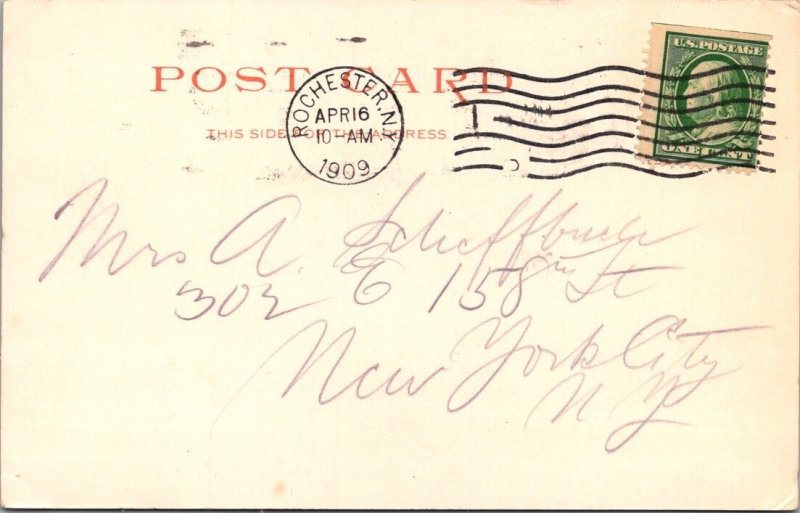 POST CARD
THIS SIDE FOR THE ADDRESS
ROCHESTER, N.Y.
APR 16
10-AM
1909
U.S. POSTAGE
ONE CENT
Mrs A.
302 E 158th St
New York City
N Y